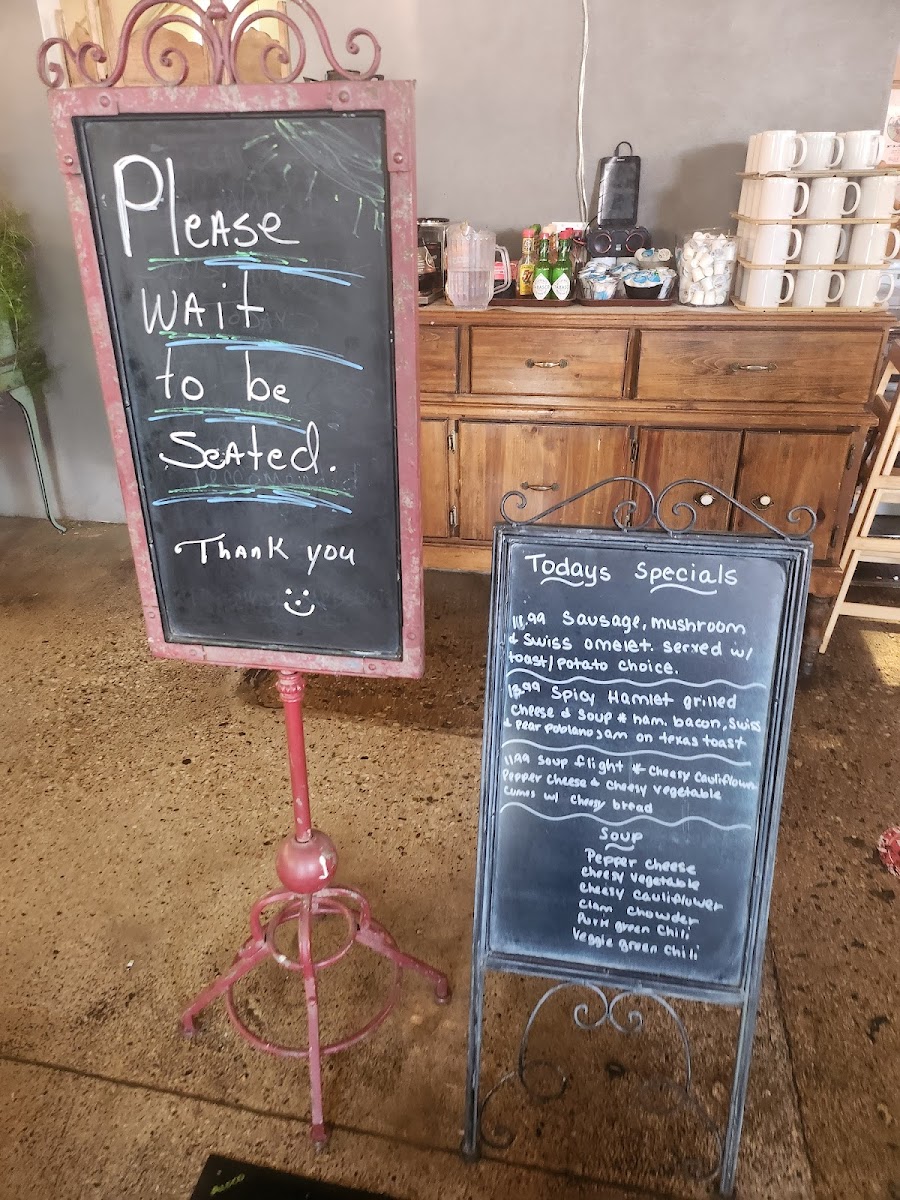 Please
wait
to be
Seated.
Thank you
Todays Specials
Sausage, mushroom
& Swiss omelet. served w/
toast/potato choice.
Spicy Hamlet grilled
cheese & soup * ham, bacon, swiss
& pear poblano jam on texas toast
11.99 soup flight * cheesy cauliflower
pepper cheese & cheesy vegetable
comes w/ cheesy bread
Soup
Pepper cheese
cheesy vegetable
cheesy cauliflower
clam chowder
Pork green chili
Veggie green chili